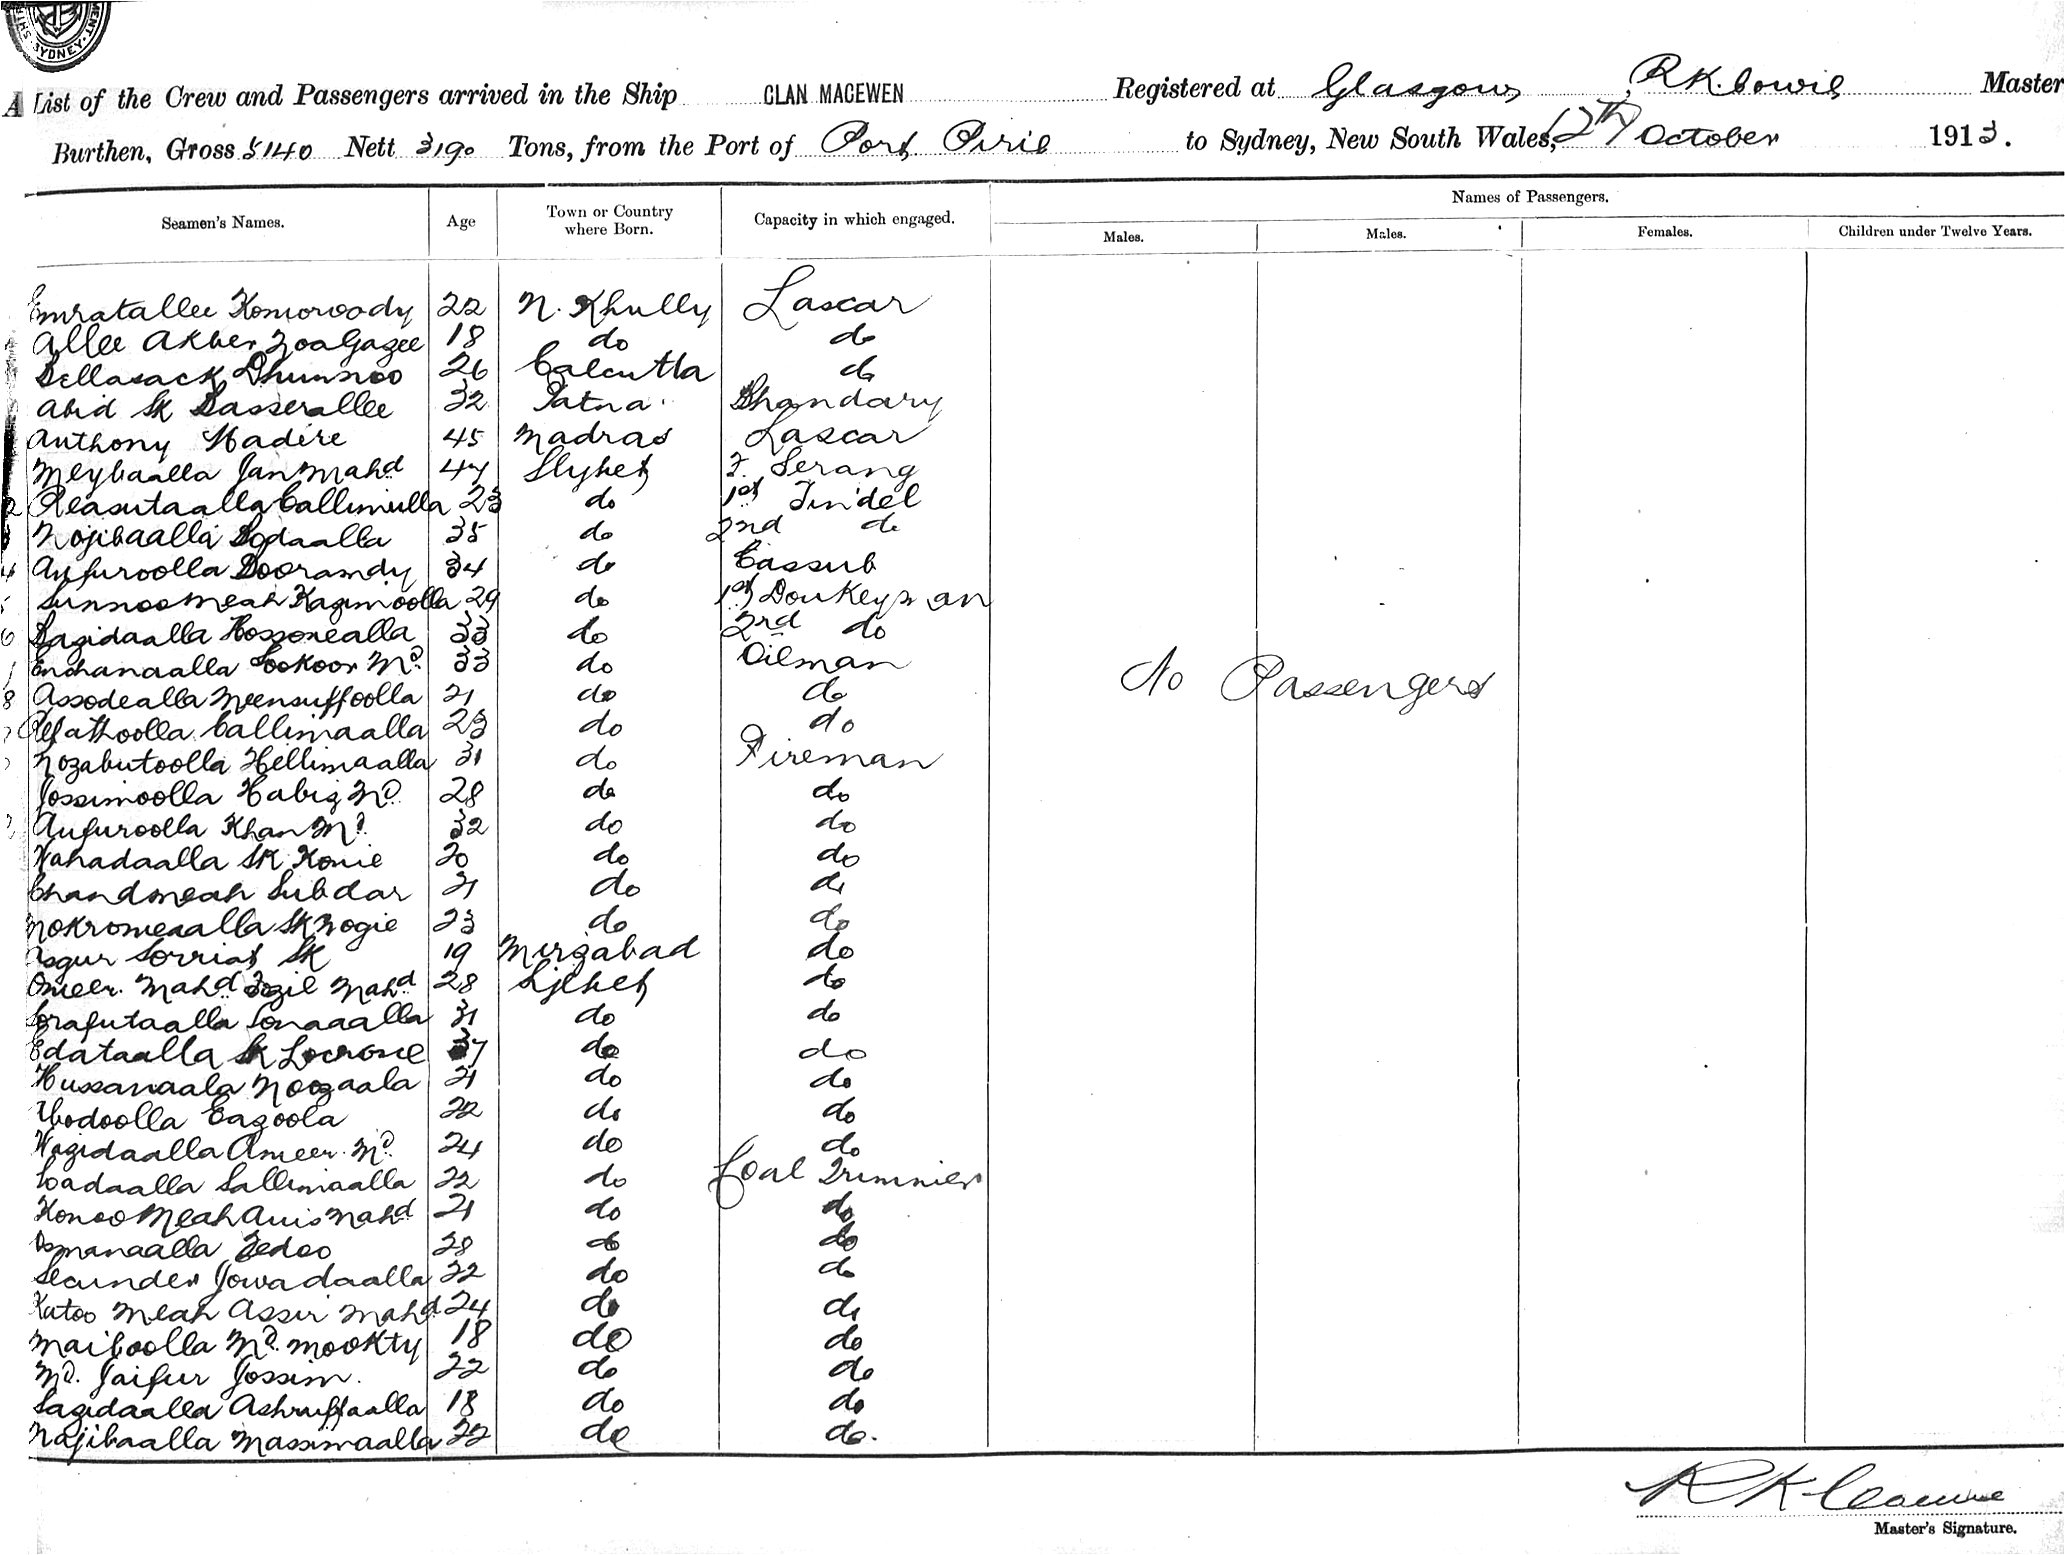 SYDNEY
A List of the Crew and Passengers arrived in the Ship CLAN MACEWEN Registered at Glasgow, R K. Cowie Master
Burthen, Gross 5140 Nett 3190 Tons, from the Port of Port Pirie to Sydney, New South Wales, 12th October 1913.
Seamen's Names. Age Town or Country where Born. Capacity in which engaged. Names of Passengers.
Males. Males. Females. Children under Twelve Years.
Emratallee Komoroody 22 N. Khully Lascar
Allee Akber Zoa Gazee 18 do do
Bellasack Dhunnoo 26 Calcutta do
Abid Sk Basserallee 32 Patna Bhandary
Anthony Madire 45 Madras Lascar
Meybaalla Jan Mahd 47 Slyhet F. Serang
Reasutaalla Callimulla 23 do 1st Tindel
Nojibaalla Bodaalla 35 do 2nd do
Aufuroolla Booramdy 34 do Cassub
Sunnoo Meah Kazimoolla 29 do 1st Donkeyman
Bazidaalla Hossonealla 33 do 2nd do
Enchanaalla Sookoor Md. 33 do Oilman
Assodealla Meensuffoolla 21 do do
Refathoolla Callimaalla 23 do do
Nozabutoolla Hellimaalla 31 do Fireman
Jossimoolla Habig Md. 28 do do
Aufuroolla Khan Md. 32 do do
Wahadaalla Sk Konie 20 do do
Chandmeah Subdar 21 do do
Mokromeaalla Sk Mogie 23 do do
Asgur Sorriat Sk 19 Mirzabad do
Omeer Mahd Fozil Mahd 28 Sylhet do
Sorafutaalla Sonaaalla 31 do do
Edataalla Sk 37 do do
Hussanaala Noozaala 21 do do
Ubodoolla Eazoola 22 do do
Wazidaalla Ameer Md. 24 do do
Soadaalla Sallimaalla 22 do Coal Trimmer
Konoo Meah Anis Mahd 21 do do
Osmanaalla Zedoo 28 do do
Secunder Jowadaalla 22 do do
Kutoo Meah Assir Mahd 24 do do
Maiboolla Md. Mookty 18 do do
Md. Jaifur Jossim. 22 do do
Sazidaalla Ashruffaalla 18 do do
Najibaalla Massimaalla 22 do do.
No Passengers
R K Cowie
Master's Signature.